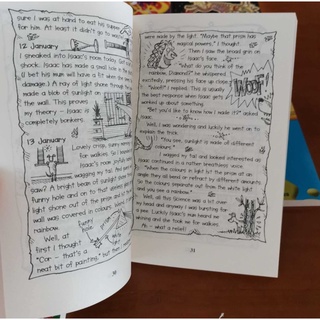 sure I was at hand to eat his supper
for him. At least it didn't go to waste.
12 January
I sneaked into Isaac's room today. Got
shock. Isaac has made a small hole
I bet his mum will have a fit when she
damage. A ray of light shone through the
made a blob of sunlight on
the wall. This proves
my theory -
completely bonkers.
13 January
Lovely crisp, sunny
for walkies. So I
Isaac's room joyfully
wagging my tail. And
saw? A bright beam of sunlight from
funny hole and on to that
light shone out of the prism and
wall was covered in colours.
rainbow.
Well, at
first I thought
"Cor - that's a
neat bit of painting," but then
30
were made by the light. "Maybe that prism has
magical powers," I thought.
Then I saw the broad grin on
Isaac's face.
"What do you think of the
rainbow, Diamond?" he whispered
excitedly, pressing his face up close.
"Woof!" I replied. This is usually
the best answer when Isaac gets all
worked up about something.
WOOF
"Bet you'd like to know how I made it!" asked
Isaac.
Well, I was wondering and luckily he went on to
explain the trick.
"You see, sunlight is made of different
colours."
I wagged my tail and looked interested as
Isaac continued in a rather breathless voice.
"When the colours in light hit the prism at an
angle they all bend or refract by different amounts.
So the colours separate out from the white light
and you see a rainbow."
Well, all this Science was a bit over
my head and anyway I was bursting for
a pee. Luckily Isaac's mum heard me
whining and she took me for walkies.
Ah - what a relief!
31